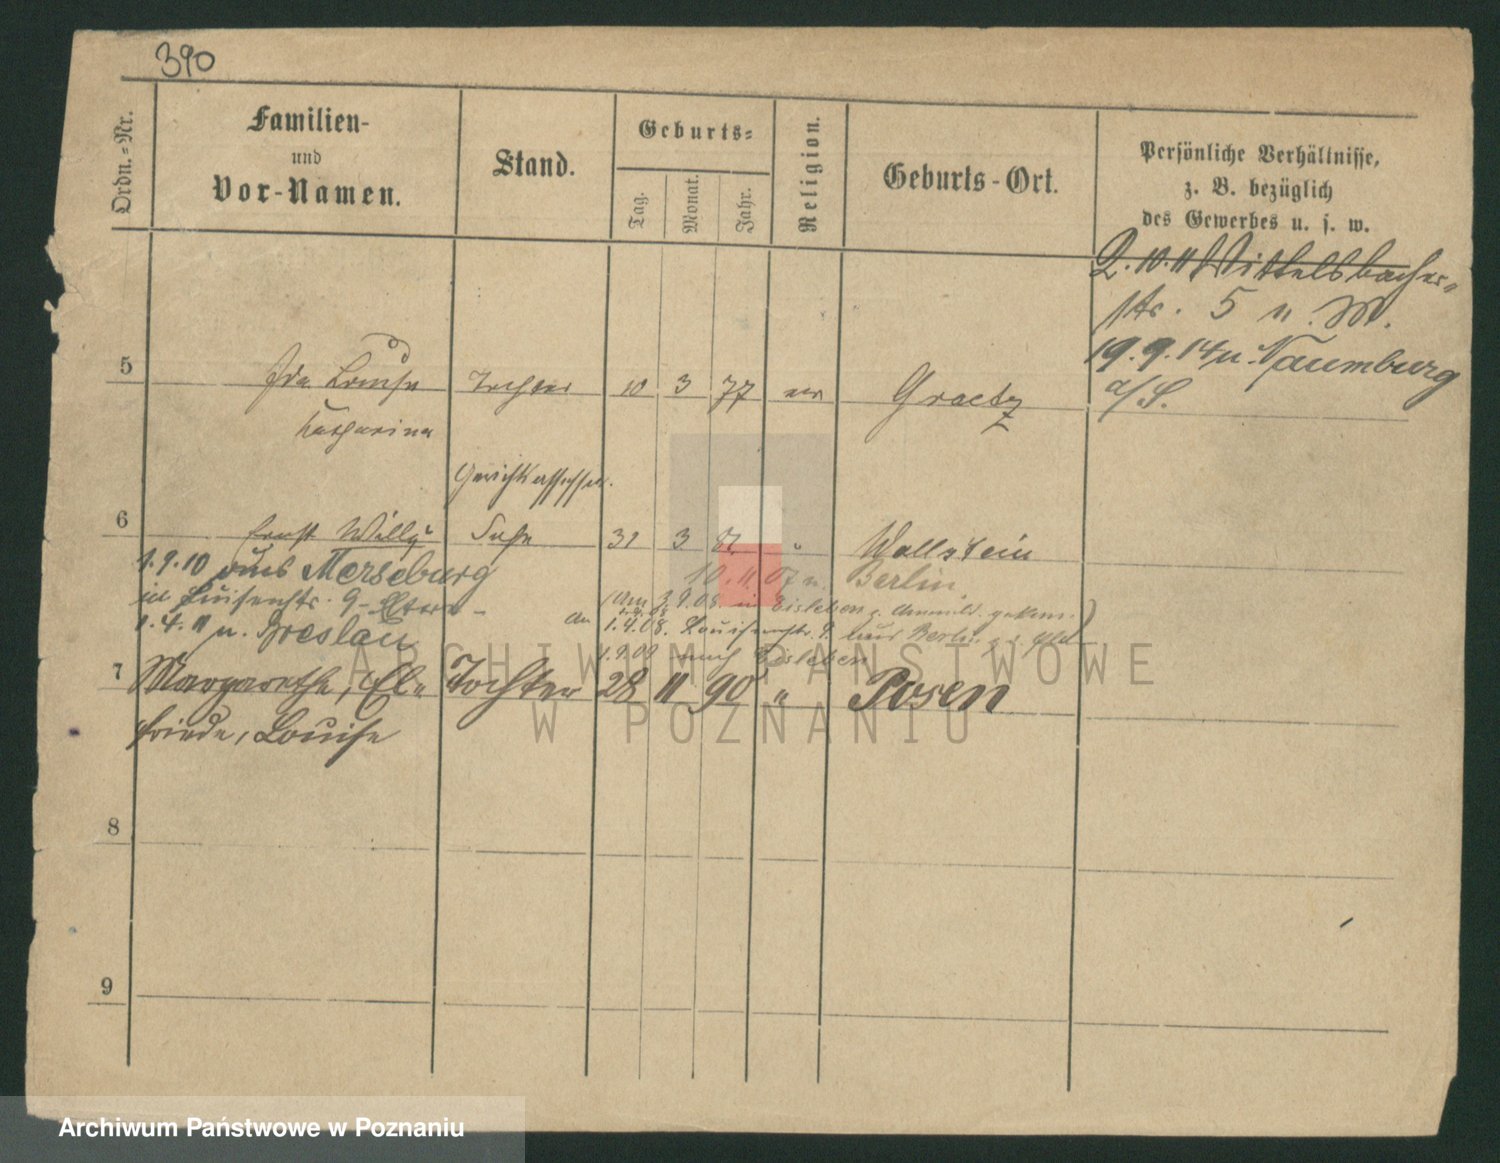 390
Ordn.-Nr.
Familien-
und
Vor-Namen.
Stand.
Geburts-
Tag.
Monat.
Jahr.
Religion.
Geburts-Ort.
Persönliche Verhältnisse,
z. B. bezüglich
des Gewerbes u. s. w.
2.10.11 Wittelsbacher-
str. 5 u. M.
19.9.14 n. Naumburg
a/S.
5 Ida Louise Tochter 10 3 77 ev Graetz
Katharina
Gerichtsassessor.
6 Ernst Willy Sohn 31 3 81 " Wollstein
1.9.10 aus Merseburg
10.11.07 n. Berlin.
in Luisenstr. 9
(Am 3.9.08 in Eisleben z.
1.4.11 n. Breslau
1.4.08. Louisenstr. 9. aus Berlin
1.9.09 nach Eisleben
7 Margarethe, El- Tochter 28 11 90 " Posen
friede, Louise
8
9
ARCHIWUM PAŃSTWOWE
W POZNANIU
Archiwum Państwowe w Poznaniu